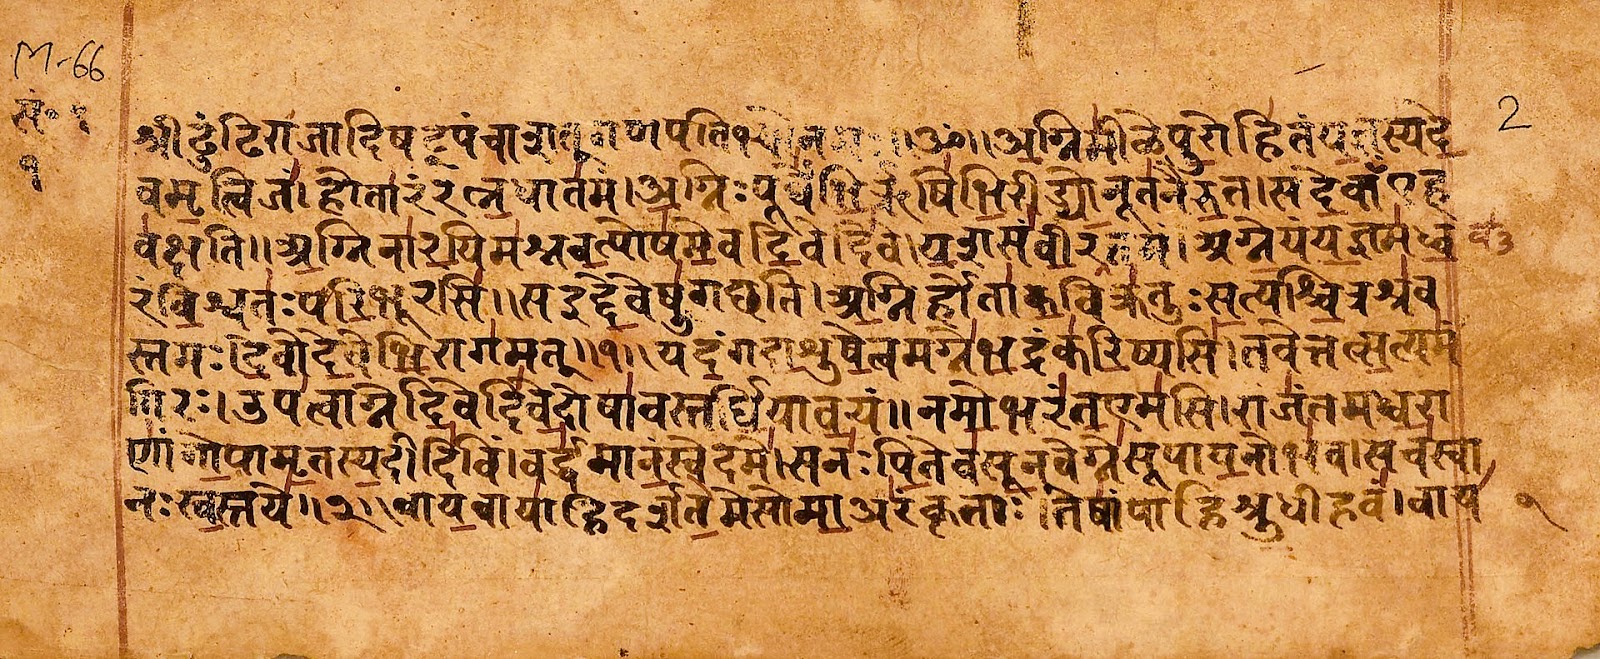 M-66
सं॰ १
१
2
श्रीढुंढिराजादिषट्पंचाशत्गणपतिभ्योनमः॥ॐ॥अग्निमीळेपुरोहितंयज्ञस्यदे
वमृत्विजं।होतारंरत्नधातमं।अग्निःपूर्वेभिर्ऋषिभिरीड्योनूतनैरुत।सदेवाँएह
वक्षति॥अग्निनारयिमश्नवत्पोषमेवदिवेदिवे।यशसंवीरवत्तमं।अग्नेयंयज्ञमध्व
रंविश्वतःपरिभूरसि॥सइद्देवेषुगछति।अग्निर्होताकविक्रतुःसत्यश्चित्रश्रव
स्तमः।देवोदेवेभिरागमत्॥१॥यदंगदाशुषेत्वमग्नेभद्रंकरिष्यसि।तवेत्तत्सत्यम
गिरः।उपत्वाग्नेदिवेदिवेदोषावस्तर्धियावयं॥नमोभरंतएमसि।राजंतमध्वरा
णांगोपामृतस्यदीदिविं।वर्द्धमानंस्वेदमे।सनःपितेवसूनवेग्नेसूपायनोभव।सचस्वा
नःस्वस्तये॥२॥वायवायाहिदर्शतेमेसोमाअरंकृताः।तेषांपाहिश्रुधीहवं।वाय
१